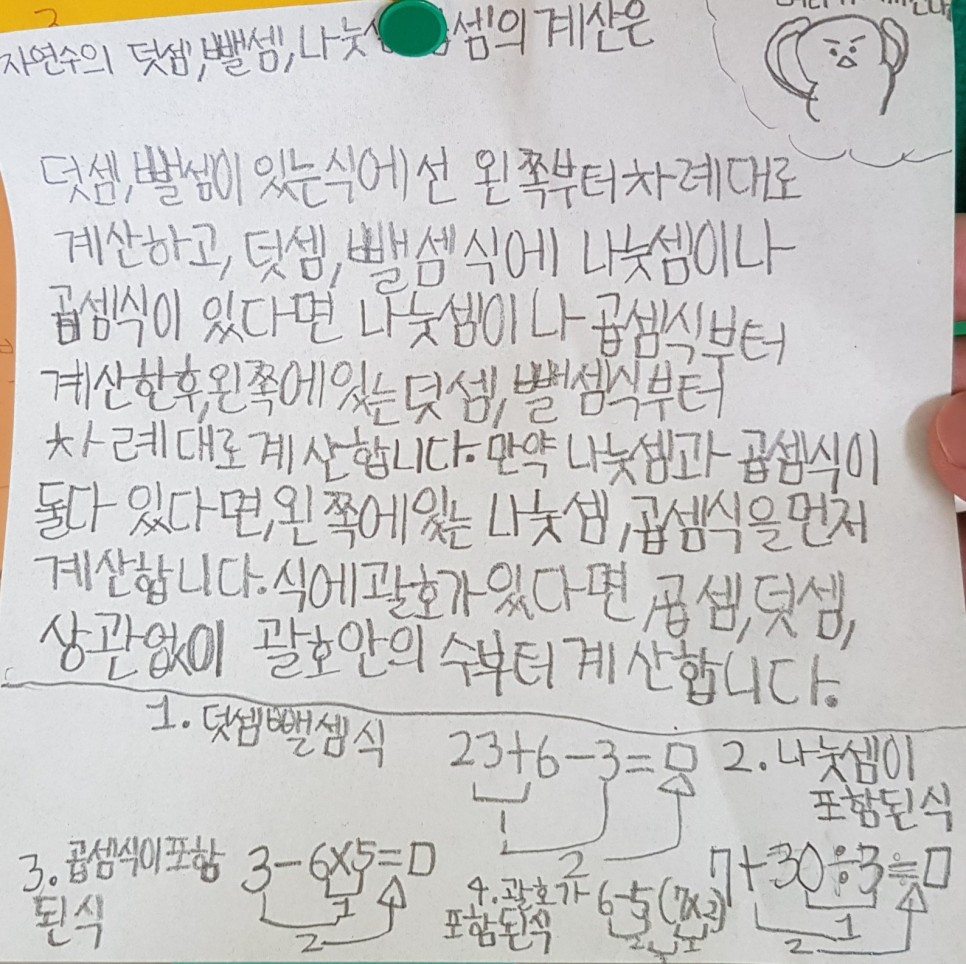 자연수의 덧셈,뺄셈,나눗 셈의 계산은
덧셈,뺄셈이 있는식에선 왼쪽부터차례대로
계산하고, 덧셈, 뺄셈식에 나눗셈이나
곱셈식이 있다면 나눗셈이나 곱셈식부터
계산한후,왼쪽에있는 덧셈,뺄셈식부터
차례대로계산합니다.만약 나눗셈과 곱셈식이
둘다 있다면,왼쪽에있는 나눗셈,곱셈식을먼저
계산합니다.식에괄호가있다면,곱셈,덧셈,
상관없이 괄호안의 수부터계산합니다.
1. 덧셈뺄셈식
23+6-3=□
1
2
2. 나눗셈이
포함된식
7+30÷3=□
1
2
3. 곱셈식이포함
된식
3-6×5=□
1
2
4.괄호가
포함된식
6-5(7×2)